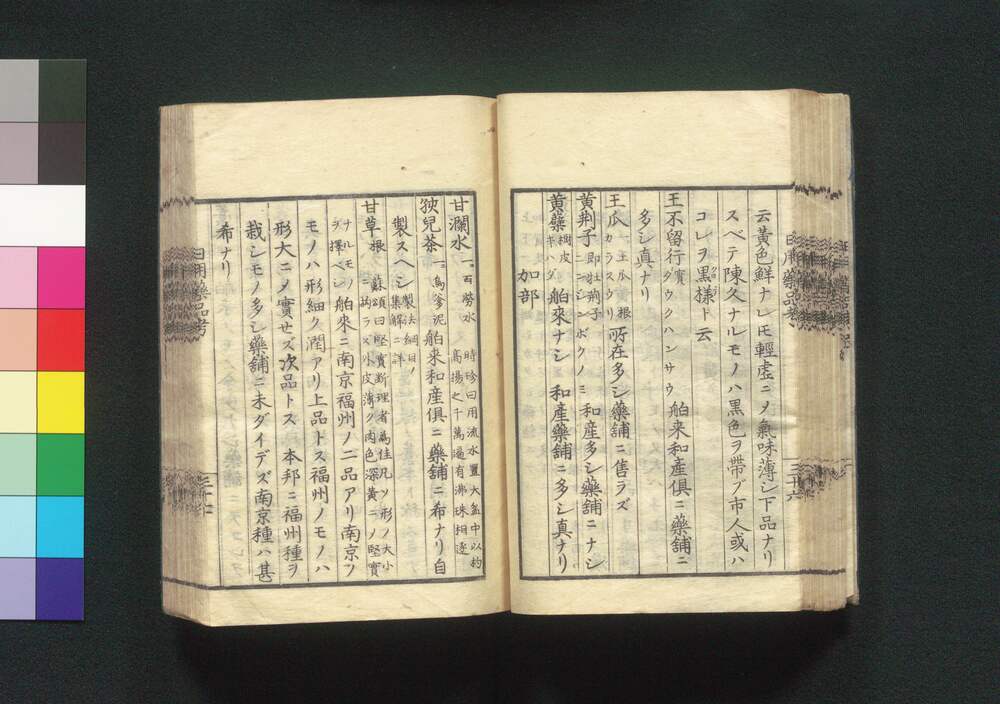 云黄色鮮ナレㇳモ輕虚ニシテ氣味薄シ下品ナリ
スベテ陳久ナルモノハ黒色ヲ帶ブ市人或ハ
コレヲ黒様ト云
王不留行 實 ダウクハンサウ 舶来和産俱ニ藥舗ニ
多シ真ナリ
王瓜 一 王瓜根 カラスウリ 所在多シ藥舗ニ售ラズ
黄荆子 即牡荊子 ニンジンボクノミ 和産多シ藥舗ニナシ
黄蘗 樹皮 キハダ 舶來ナシ 和産藥舗ニ多シ真ナリ
加部
日用藥品考
三十六
甘瀾水 一名 百勞水 時珍曰用流水置大盆中以杓
高揚之千萬遍有沸珠相逐
猰兒茶 一名 烏爹泥 舶来和産俱ニ藥舗ニ希ナリ自
製スヘシ 製法綱目ノ集解ニ詳
甘草 根 蘇頌曰堅實断理者為佳凡ソ形ノ大小
ニ拘ラズ外皮薄ク肉色深黄ニシテ堅實
ナルモノヲ擇ベシ 舶來ニ南京福州ノ二品アリ南京ノ
モノハ形細ク潤アリ上品トス福州ノモノハ
形大ニシテ實セズ次品トス 本邦ニ福州種ヲ
栽シモノ多シ藥舗ニ未ダイデズ南京種ハ甚
希ナリ
日用藥品考